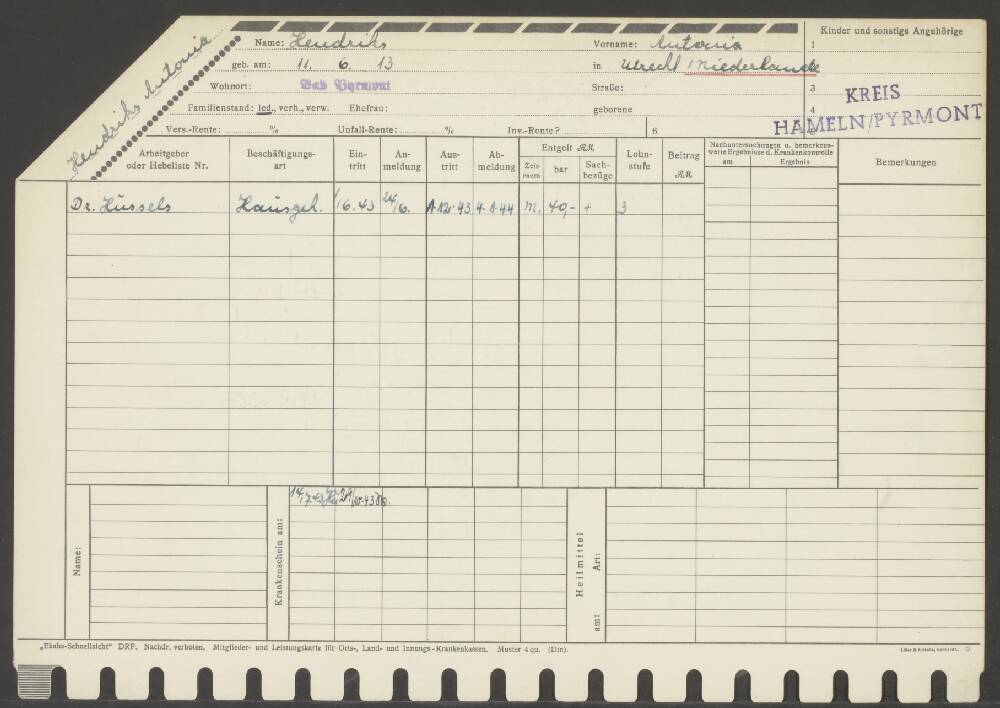 Hendriks Antonia
Name: Hendriks Vorname: Antonia
Kinder und sonstige Angehörige
1
geb. am: 11. 6. 13 in Utrecht, Niederlande
Wohnort: Bad Pyrmont Straße: 3
Familienstand: led., verh., verw. Ehefrau: geborene 4
KREIS
HAMELN/PYRMONT
Vers.-Rente: % Unfall-Rente: % Inv.-Rente? 6
Arbeitgeber oder Hebeliste Nr.
Beschäftigungs-art
Ein-tritt
An-meldung
Aus-tritt
Ab-meldung
Entgelt RM
Zeit-raum
bar
Sach-bezüge
Lohn-stufe
Beitrag RM
Nachuntersuchungen u. bemerkens-werte Ergebnisse d. Krankenkontrolle
am
Ergebnis
Bemerkungen
Dr. Hüssels Hausgeh. 1/6.43 24/6. 1.12.43 4.1.44 M. 40,- + 3
Name:
Krankenschein am:
14/7.43
Heilmittel
Art:
am:
„Ekaha-Schnellsicht“ DRP. Nachdr. verboten. Mitglieder- und Leistungskarte für Orts-, Land- und Innungs-Krankenkassen. Muster 4 qu. (Din).